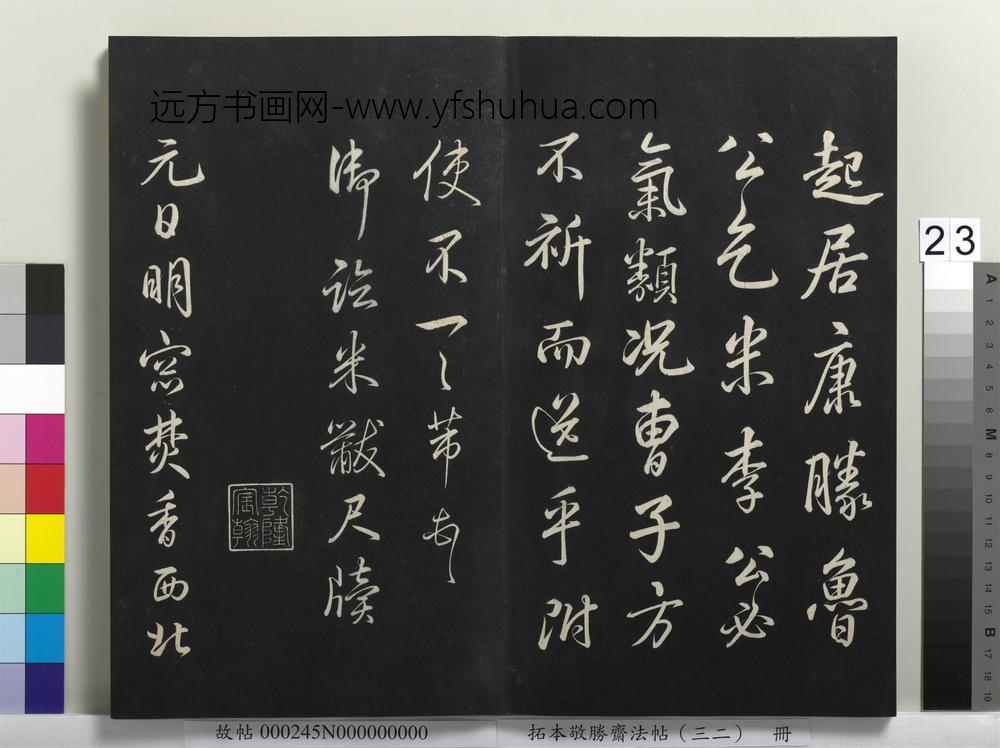 远方书画网-www.yfshuhua.com
起居康勝魯
公乞米李公必
氣類況曹子方
不祈而送乎附
使不一〻芾頓首
御臨米黻尺牘
乾隆宸翰
元日明窓焚香西北
23
A 1 2 3 4 5 6 M 8 9 10 11 12 13 14 15 B 17 18 19
故帖 000245N000000000
拓本敬勝齋法帖（三二） 冊